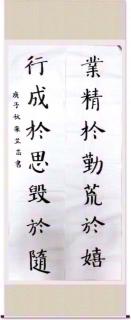 業精於勤荒於嬉
行成於思毀於隨
庚子秋朱芝芬書